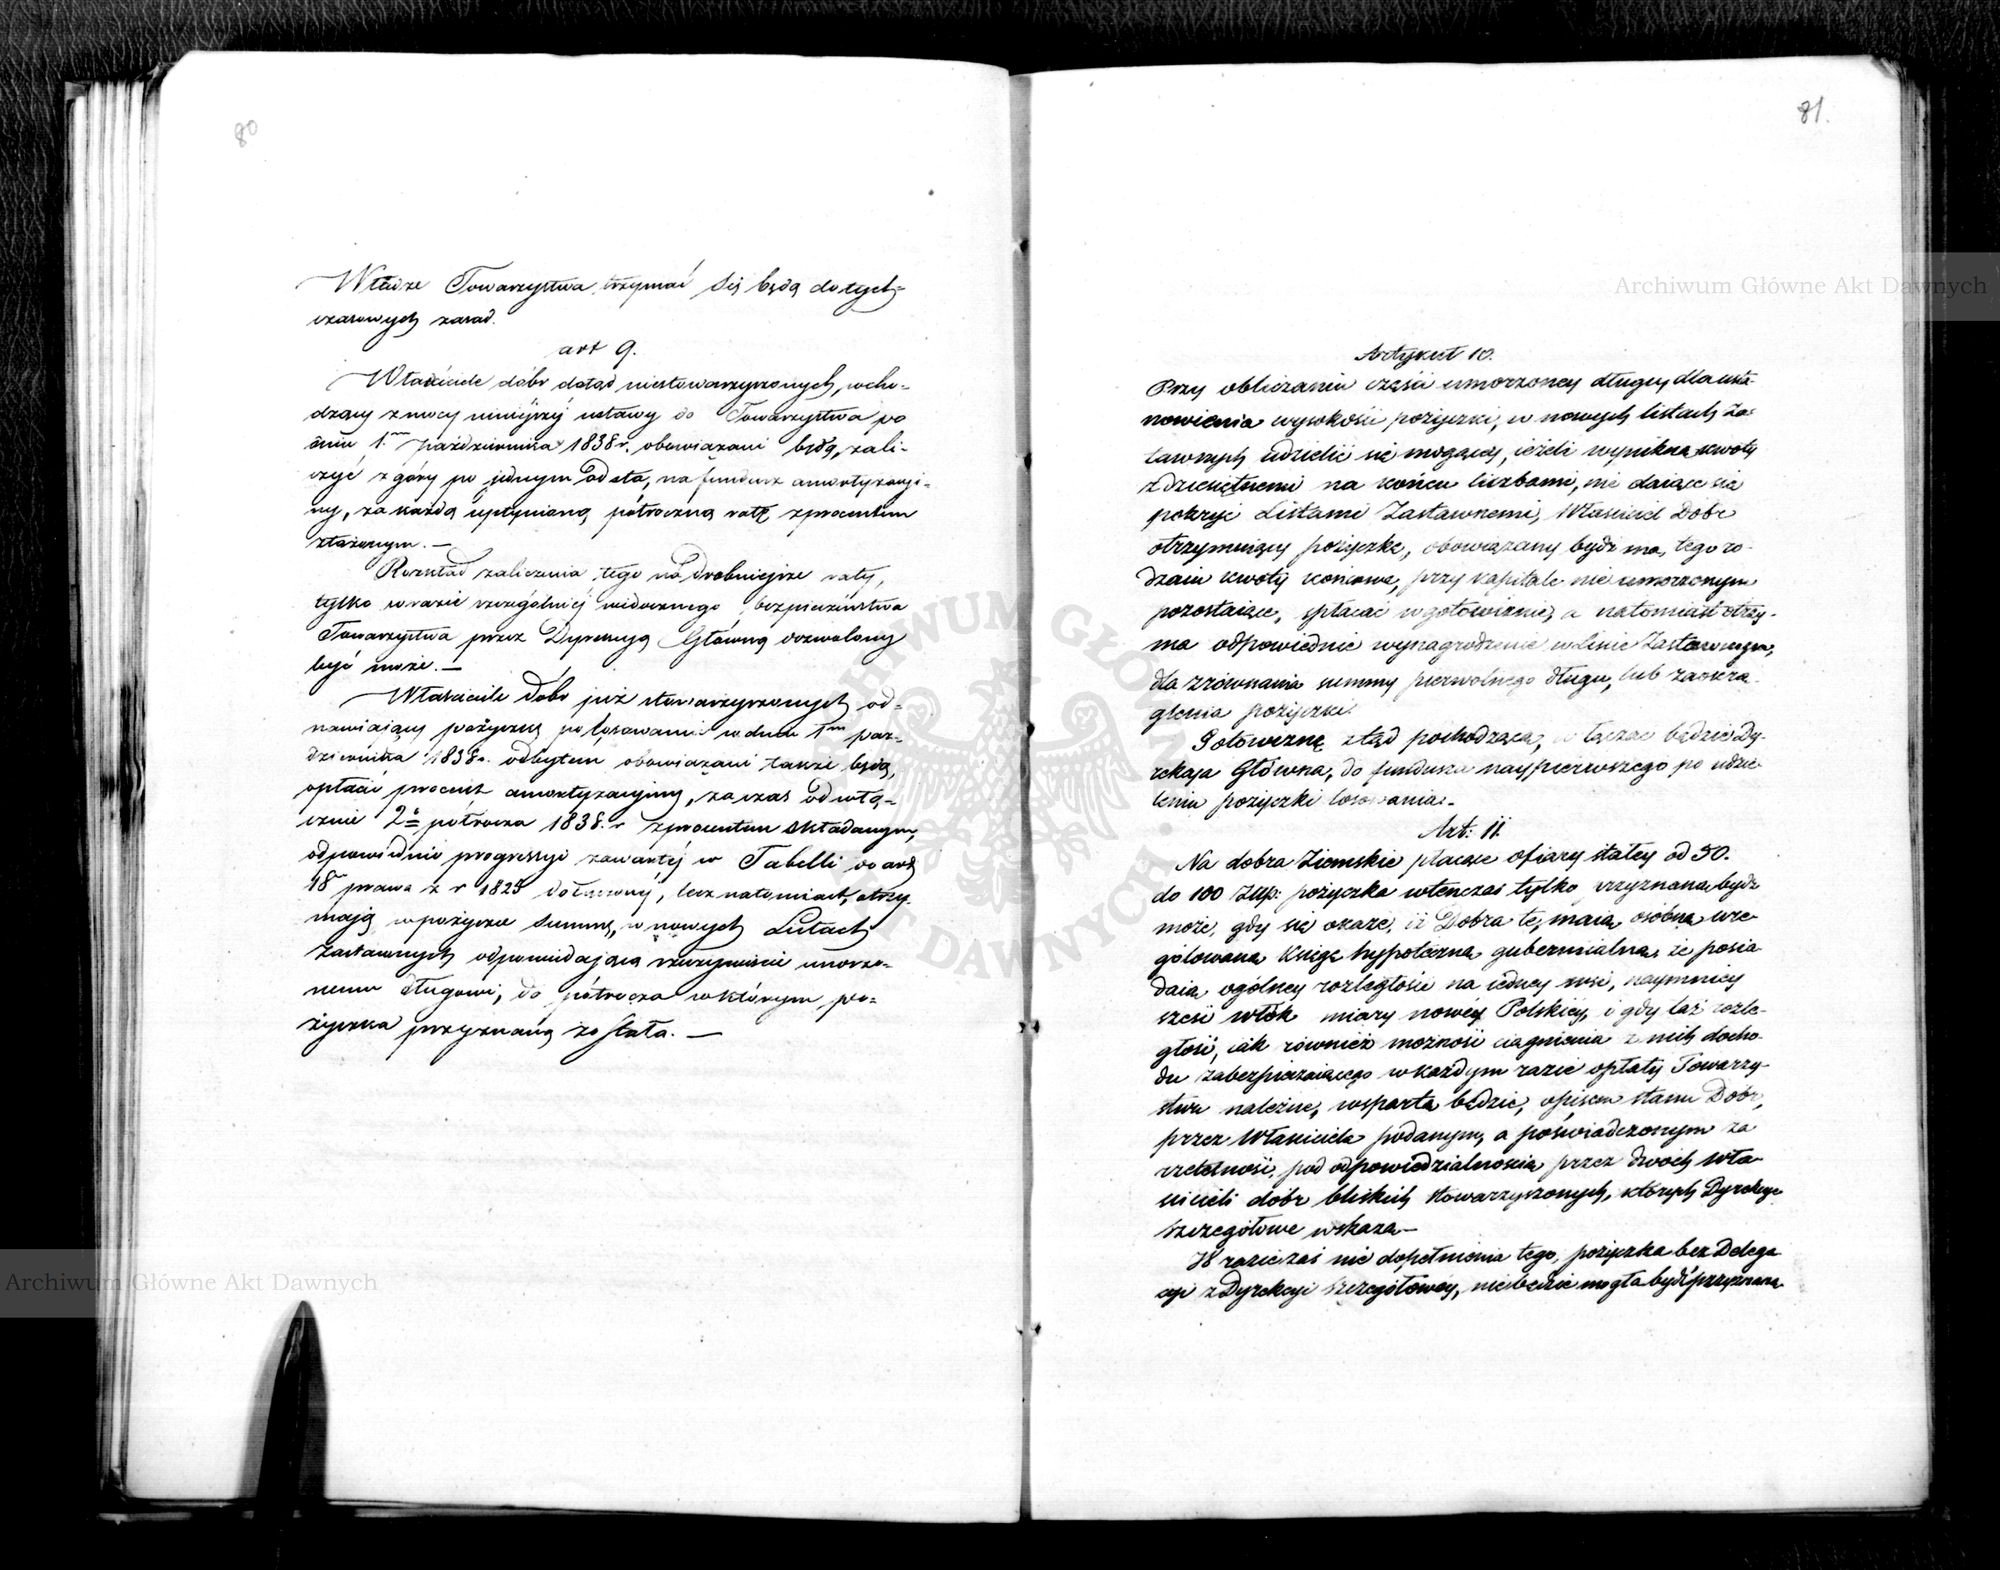 80
Władze Towarzystwa trzymać się będą dotych=
czasowych zasad.
art 9.
Właściciele dóbr dotąd niestowarzyszonych, wcho-
dzący z mocy ninieyszéj ustawy do Towarzystwa po
dniu 1. października 1838 r. obowiązani będą, zali-
czyć z góry po jednym od sta, na fundusz amortyzacyi-
ny, za każdą upłynioną półroczną ratę z procentem
złożonym. —
Rozkład zaliczenia tego na drobniejsze raty,
tylko w razie szczególniéj widocznego bezpieczeństwa
Towarzystwa przez Dyrekcyą Główną dozwolony
być może. —
Właściciele dóbr już stowarzyszonych od-
nawiaiący pożyczkę po losowaniu w dniu 1m paź-
dziernika 1838 r. odbytem obowiązani także będą,
opłacić procent amortyzacyiny, za czas od włą-
cznie 2o półrocza 1838. r z procentem składanym,
odpowiednio progressyi zawartéj w Tabelli do art
18 prawa z r 1825 dołączonéj, lecz natomiast, otrzy-
mają w pożyczce summę, w nowych Listach
Zastawnych odpowiadającą rzeczywiście umorzo-
nemu długowi, do półrocza w którym po-
życzka przyznaną została. —
81.
Artykuł 10.
Przy obliczaniu części umorzoney długu, dla usta-
nowienia wysokości pożyczki, w nowych listach Za-
stawnych udzielić się mogącey, ieżeli wynikną kwoty
z dziesiętnemi na końcu liczbami, nie daiące się
pokryć Listami Zastawnemi, Właściciel Dóbr
otrzymuiący pożyczkę, obowiązany bydź ma, tego ro-
dzaiu kwoty końcowe, przy kapitale nie umorzonym
pozostaiące, spłacać w gotowiznie, a natomiast otrzy-
ma odpowiednie wynagrodzenie w Liście Zastawnym,
dla zrównania summy pierwotnego długu, lub zaokrą-
glenia pożyczki.
Gotowiznę ztąd pochodzącą, włączać będzie Dy-
rekcja Główna, do funduszu naypierwszego po udzie
leniu pożyczki losowania. -
Art: 11.
Na dobra Ziemskie płacące ofiary stałey od 50.
do 100 Złłp: pożyczka wtenczas tylko przyznana bydź
może, gdy się okaże, iż Dobra te, maią osobną ure-
gulowaną Księgę hypoteczną gubernialną, że posia-
daią ogólney rozległości na iedney wsi, naymniey
sześć włók miary nowéy Polskiéy, i gdy taż rozle-
głość, iak również możność ciągnienia z nich docho-
du zabezpieczaiącego w każdym razie opłaty Towarzy-
stwu należne, wsparta będzie, opisem stanu Dóbr,
przez Właściciela podanym, a poświadczonym za
rzetelność, pod odpowiedzialnością przez dwóch wła-
ścicieli dóbr bliskich stowarzyszonych, których Dyrekcye
Szczegółowe wskażą —
W razie zaś nie dopełnienia tego, pożyczka bez Delega
cyi z Dyrekcyi Szczegółowéy, nie będzie mogła być przyznaną
Archiwum Główne Akt Dawnych
Archiwum Główne Akt Dawnych
ARCHIWUM GŁÓWNE AKT DAWNYCH